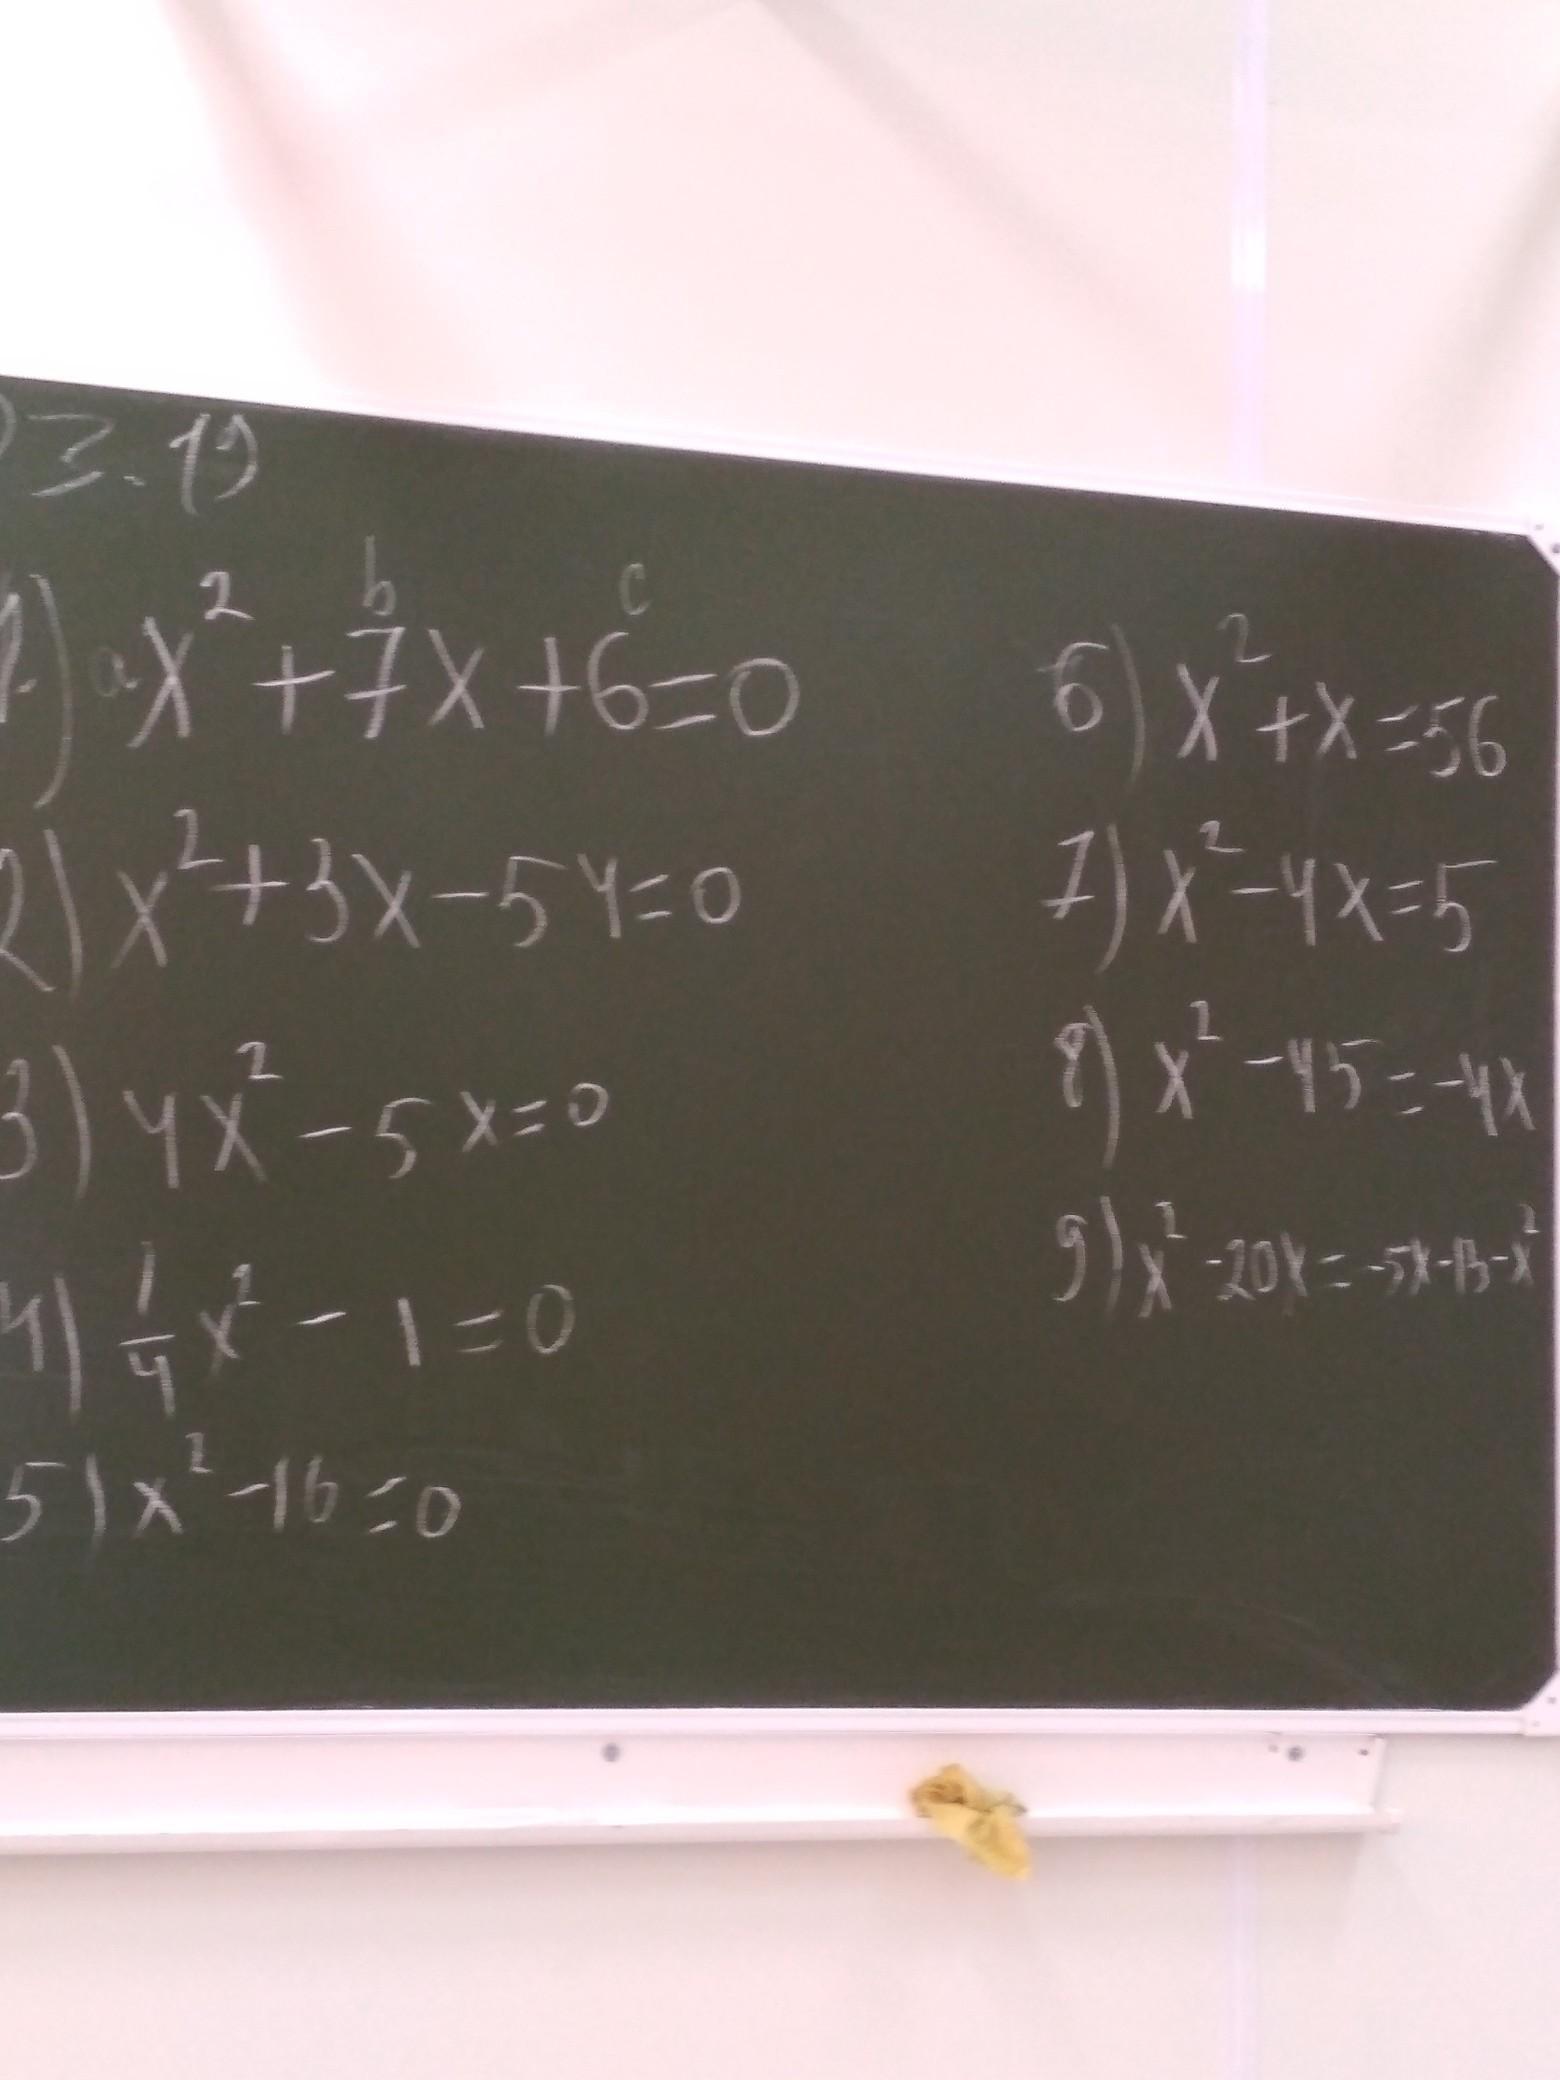 03.19
b c
1) ax² + 7x + 6 = 0
2) x² + 3x - 54 = 0
3) 4x² - 5x = 0
4) 1/4 x² - 1 = 0
5) x² - 16 = 0
6) x² + x = 56
7) x² - 4x = 5
8) x² - 45 = -4x
9) x² - 20x = -5x - 13 - x²